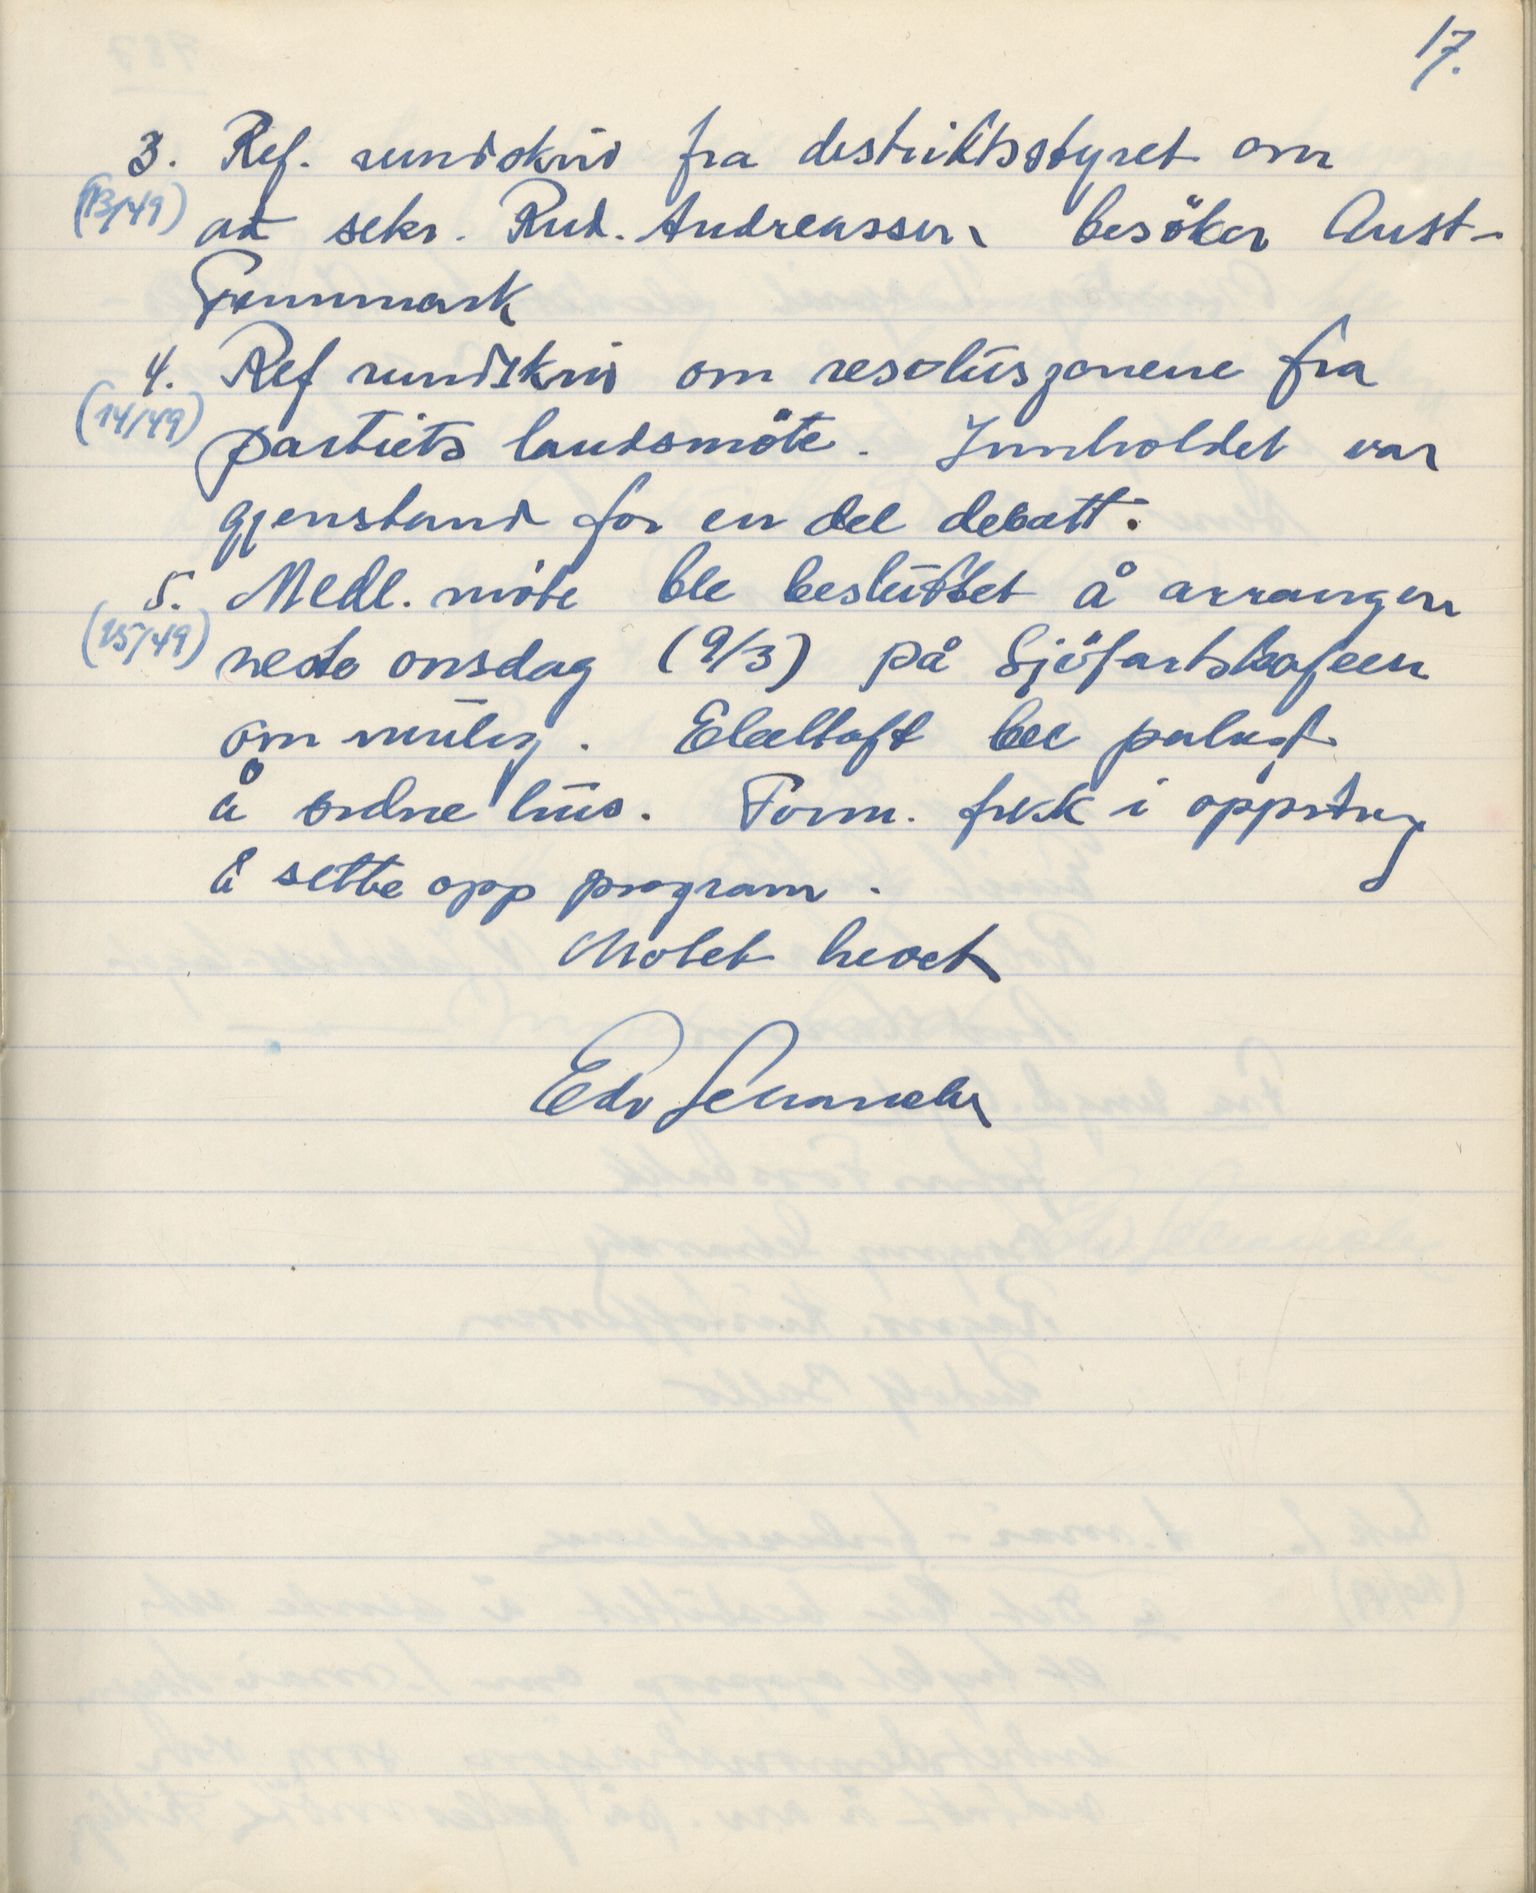 17.
3. Ref. rundskriv fra distriktsstyret om
(13/49) at sekr. Rud. Andreassen besöker Aust-
Finnmark
4. Ref rundskriv om resolusjonene fra
(14/49) partiets landsmöte. Innholdet var
gjenstand for en del debatt.
5. Medl. möte ble besluttet å arrangere
(15/49) neste onsdag (9/3) på Sjöfartskafeen
om mulig. Ebeltoft ble pålagt
å ordne hus. Form. fikk i oppdrag
å sette opp program.
Motet hevet
Edv